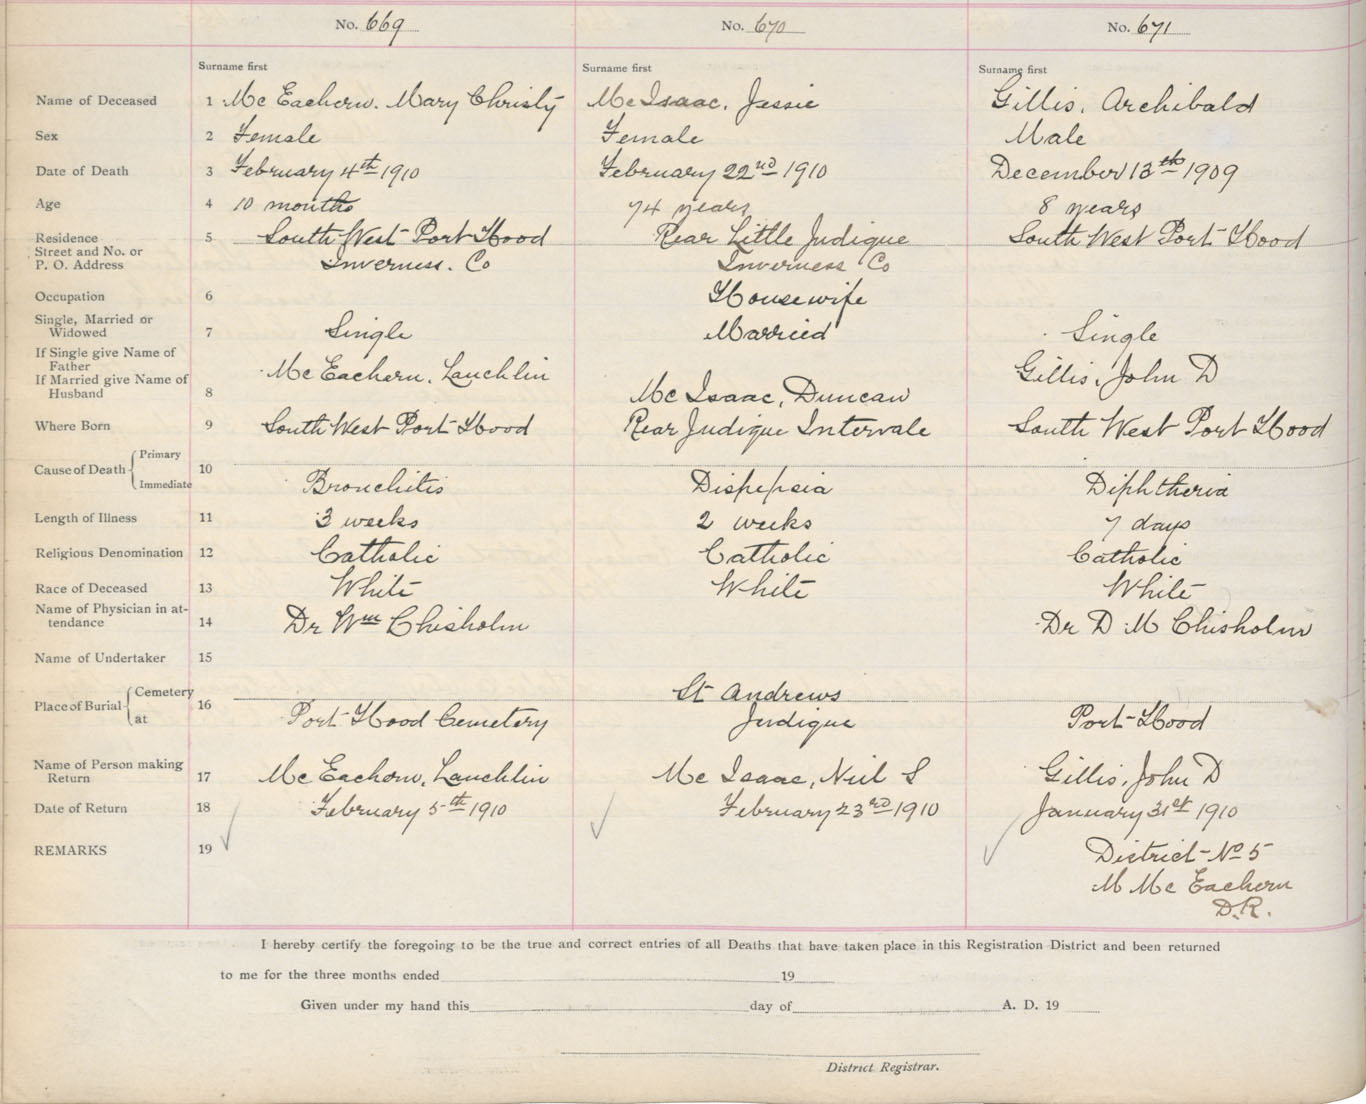 No. 669 No. 670 No. 671
Surname first Surname first Surname first
Name of Deceased 1 Mc Eachern. Mary Christy Mc Isaac, Jessie Gillis, Archibald
Sex 2 Female Female Male
Date of Death 3 February 4th 1910 February 22nd 1910 December 13th 1909
Age 4 10 months 74 years 8 years
Residence 5 South West Port Hood Rear Little Judique South West Port Hood
Street and No. or
P. O. Address Inverness. Co Inverness Co
Occupation 6 Housewife
Single, Married or
Widowed 7 Single Married Single
If Single give Name of
Father Mc Eachern, Lauchlin Gillis, John D
If Married give Name of
Husband 8 Mc Isaac, Duncan
Where Born 9 South West Port Hood Rear Judique Intervale South West Port Hood
Cause of Death Primary 10
Immediate Bronchitis Dispepsia Diphtheria
Length of Illness 11 3 weeks 2 weeks 7 days
Religious Denomination 12 Catholic Catholic Catholic
Race of Deceased 13 White White White
Name of Physician in at-
tendance 14 Dr Wm Chisholm Dr D M Chisholm
Name of Undertaker 15
Place of Burial Cemetery 16 St Andrews
at Port Hood Cemetery Judique Port-Hood
Name of Person making
Return 17 Mc Eachern, Lauchlin Mc Isaac, Neil S Gillis, John D
Date of Return 18 February 5th 1910 February 23rd 1910 January 31st 1910
REMARKS 19 District No 5
M Mc Eachern
D.R.
I hereby certify the foregoing to be the true and correct entries of all Deaths that have taken place in this Registration District and been returned
to me for the three months ended 19
Given under my hand this day of A. D. 19
District Registrar.